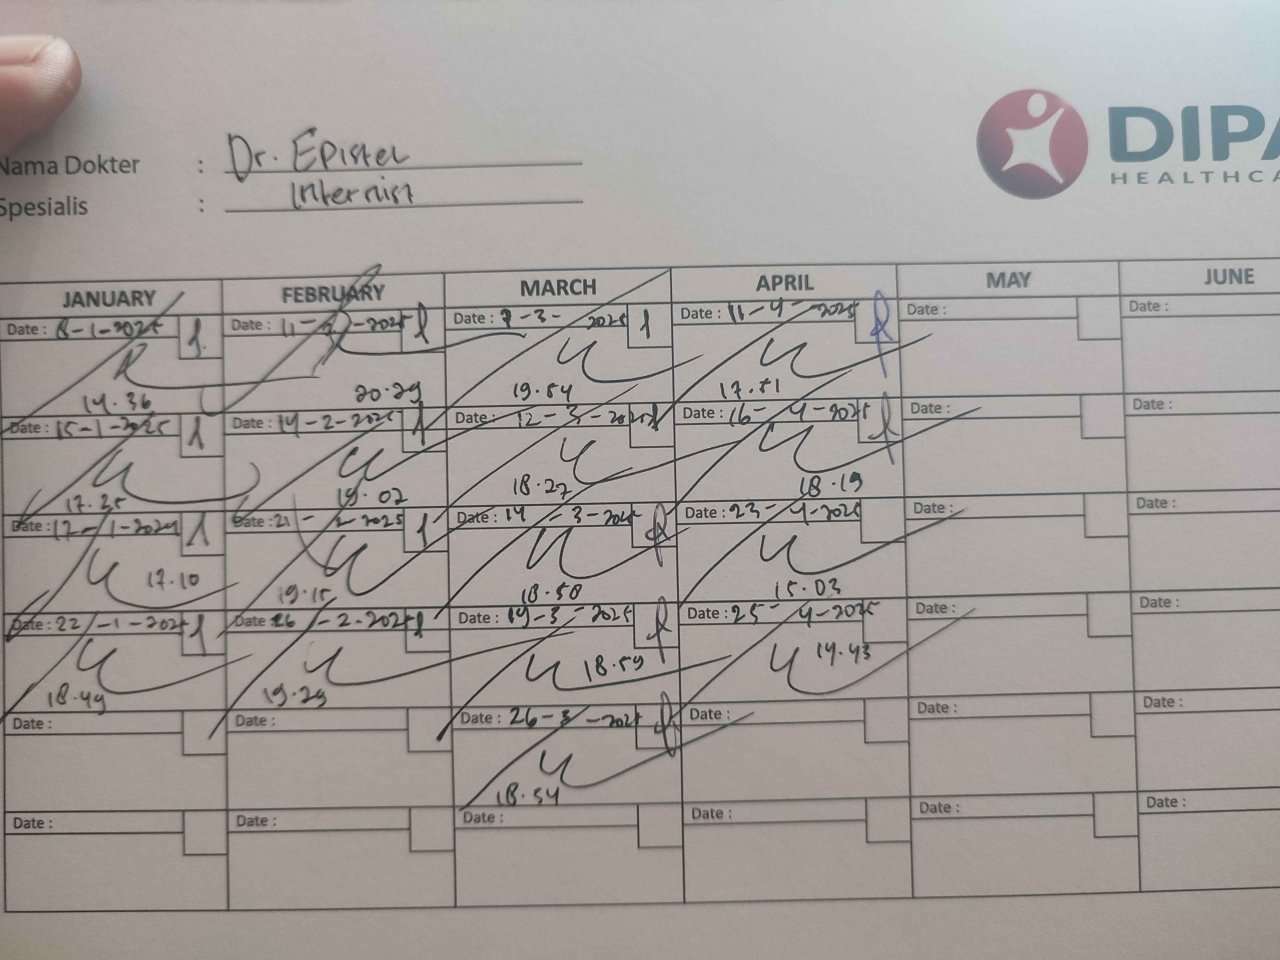 Nama Dokter : Dr. Epistel
Spesialis : Internist
DIPA
HEALTHCA
JANUARY FEBRUARY MARCH APRIL MAY JUNE
Date : 8-1-2025 Date : 11-2-2025 Date : 7-3-2025 Date : 11-4-2025 Date : Date :
14.36 20.29 19.54 17.51
Date : 15-1-2025 Date : 14-2-2025 Date : 12-3-2025 Date : 16-4-2025 Date : Date :
17.35 19.02 18.27 18.19
Date : 17-1-2025 Date : 21-2-2025 Date : 14-3-2025 Date : 23-4-2025 Date : Date :
17.10 19.15 18.58 15.03
Date : 22-1-2025 Date 26-2-2025 Date : 19-3-2025 Date : 25-4-2025 Date : Date :
18.49 19.29 18.59 14.43
Date : Date : Date : 26-3-2025 Date : Date : Date :
18.54
Date : Date : Date : Date : Date : Date :